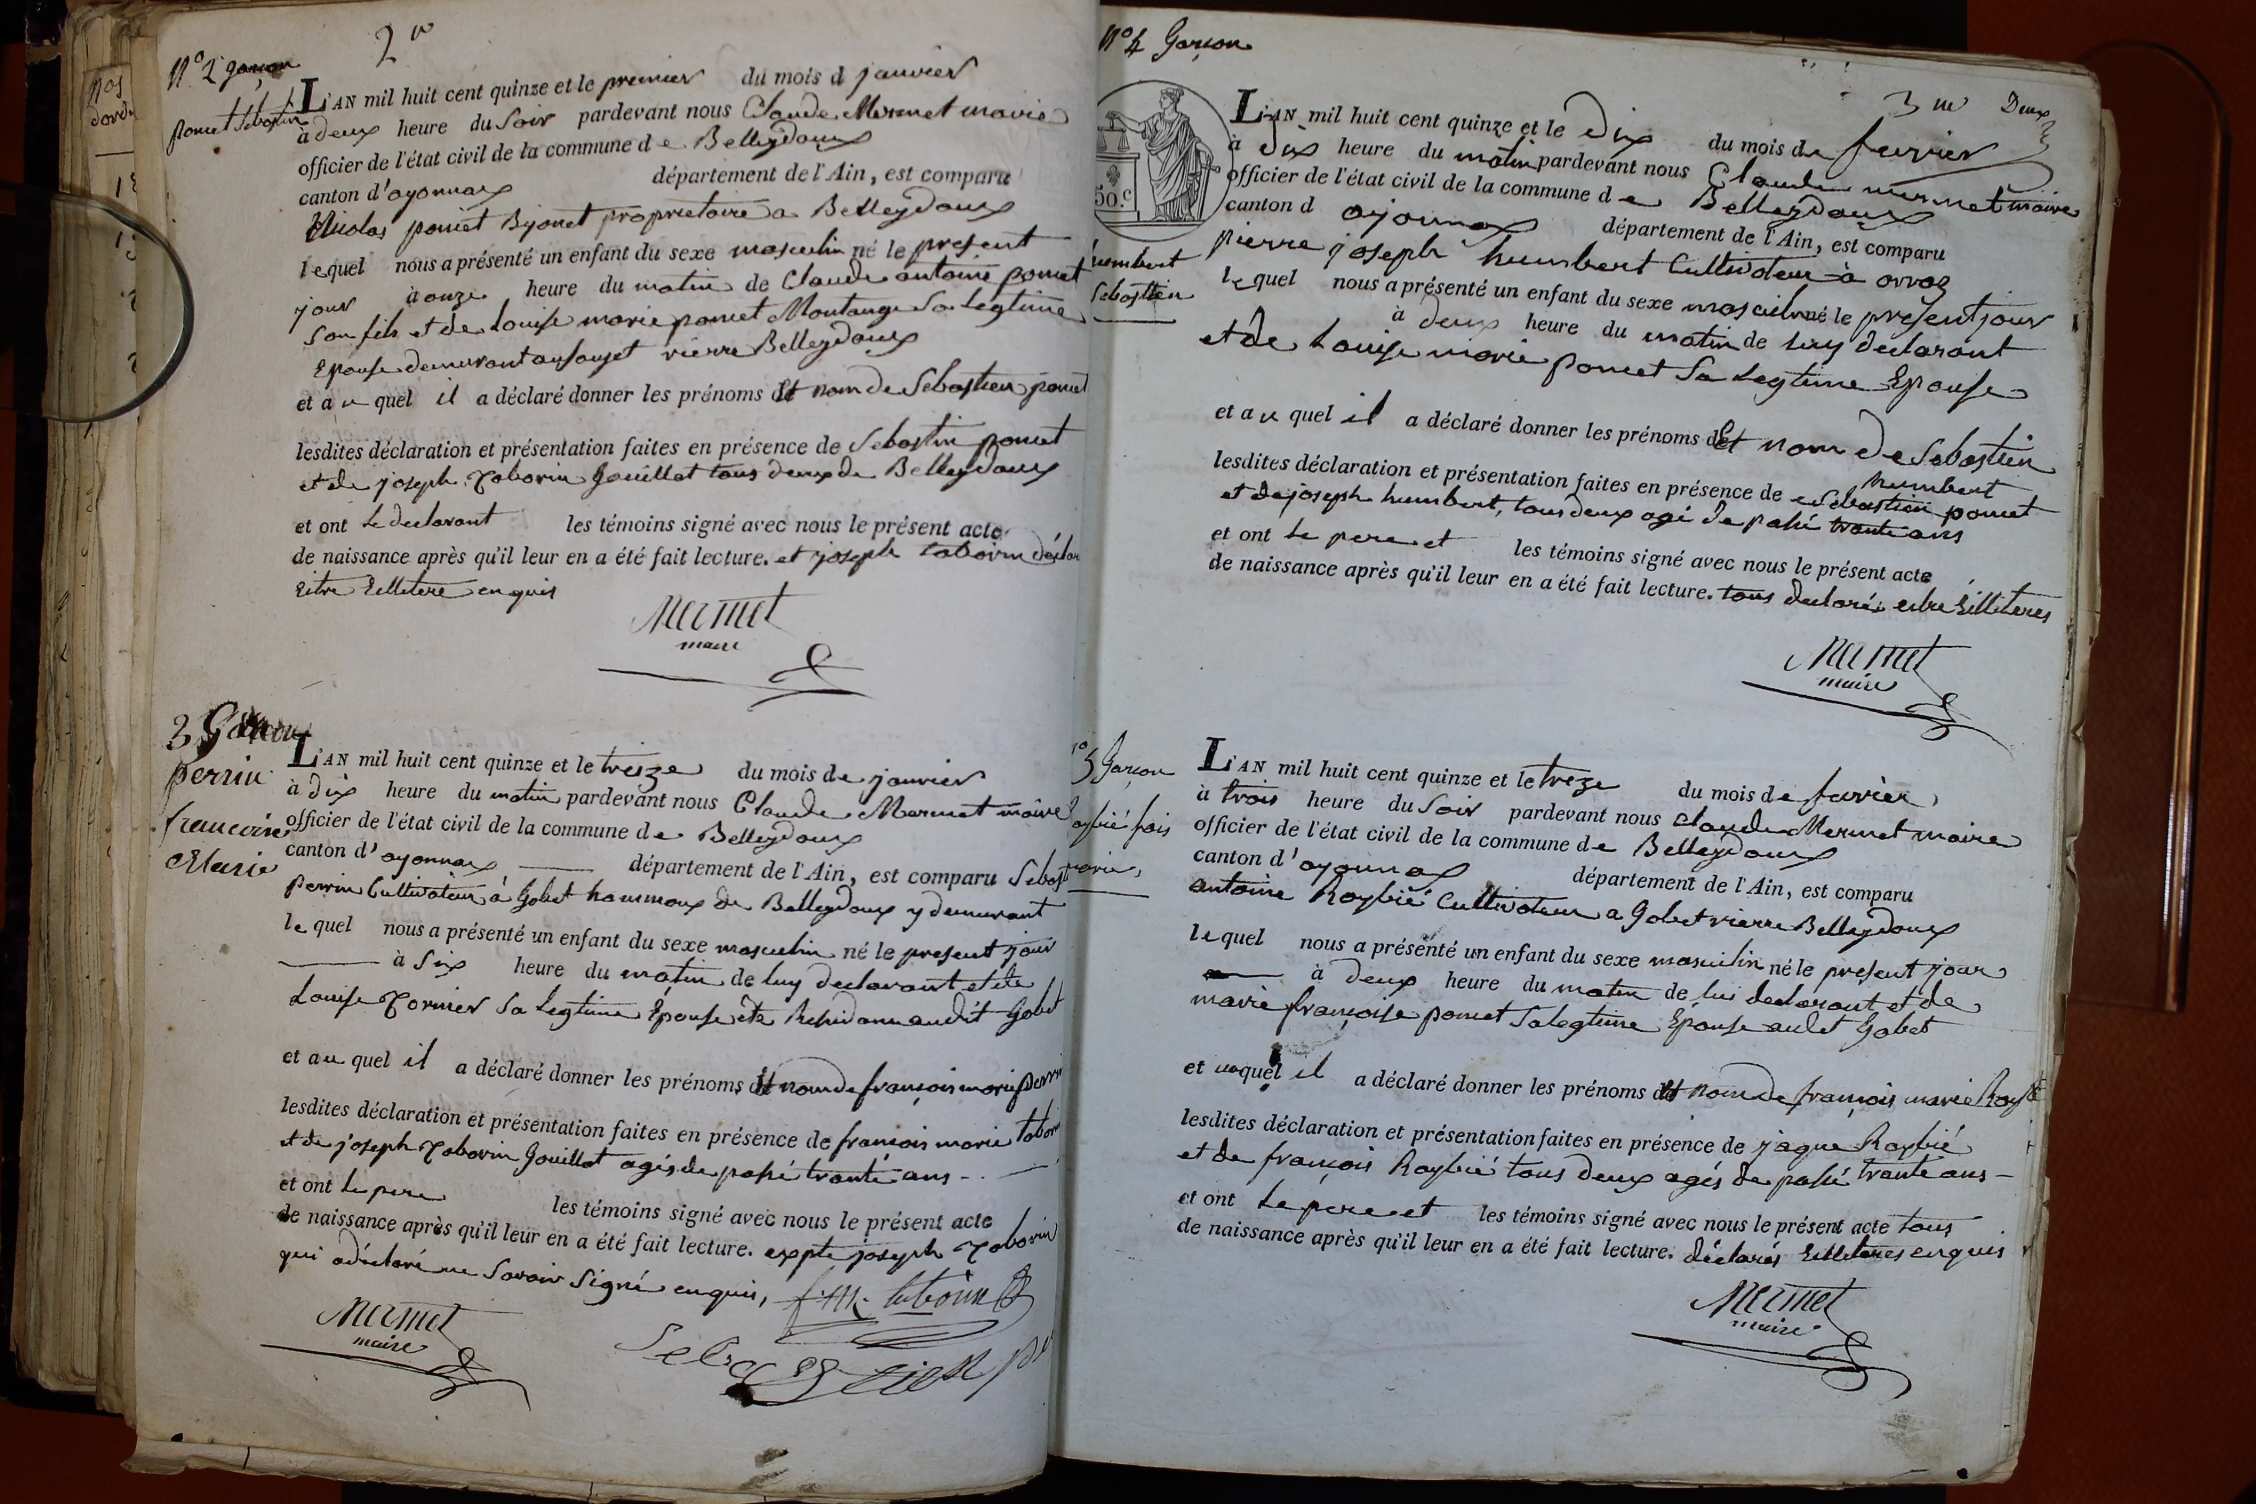 2
N.º 2 garçon
pomet Sebastin
L'AN mil huit cent quinze et le premier du mois d janvier
à deux heure du Soir pardevant nous Claude Mermet maire
officier de l'état civil de la commune de Belleydoux
canton d'oyonnax département de l'Ain, est comparu
Nicolas pomet Bijonet proprietaire a Belleydoux
lequel nous a présenté un enfant du sexe masculin né le present
jour à onze heure du matin de Claude antoine pomet
Son fils et de Louise marie pomet Montange Sa legtime
Epouse demurant au rierre Belleydoux
et au quel il a déclaré donner les prénoms Et nom de Sebastien pomet
lesdites déclaration et présentation faites en présence de Sebastin pomet
et de joseph Taborin Gouillot tous deux de Belleydoux
et ont Le declarant les témoins signé avec nous le présent acte
de naissance après qu'il leur en a été fait lecture. et joseph taborin declar
Eitre Illitere enquis
Mermet
maire
3 Garçon
perrin
francoise
Marie
L'AN mil huit cent quinze et le treize du mois de janvier
à dix heure du matin pardevant nous Claude Mermet maire
officier de l'état civil de la commune de Belleydoux
canton d'oyonnax département de l'Ain, est comparu Sebast
perrin Cultivateur à Gobet hammoux de Belleydoux y demurant
le quel nous a présenté un enfant du sexe masculin né le present jour
à Six heure du matin de luy declarant et de
Louise Tornier Sa legtime Epouse audit Gobet
et au quel il a déclaré donner les prénoms Et nom de françois marie perrin
lesdites déclaration et présentation faites en présence de françois marie tabori
et de joseph Taborin Gouillot agés de pasé trante ans
et ont Le pere les témoins signé avec nous le présent acte
de naissance après qu'il leur en a été fait lecture. expte joseph Taborin
qui a déclaré ne Savoir Signé enquis, f. m. tabourin
Mermet
maire
Sebastien pe
N.º 4 Garçon
50.c
humbert
Sebastien
3 Deux
L'AN mil huit cent quinze et le dix du mois de fevrier
à dix heure du matin pardevant nous Claude mermet maire
officier de l'état civil de la commune de Belleydoux
canton d oyonnax département de l'Ain, est comparu
pierre joseph humbert Cultivateur à orvaz
le quel nous a présenté un enfant du sexe masculin né le present jour
à deux heure du matin de luy declarant
et de Louise marie pomet Sa Legtime Epouse
et au quel il a déclaré donner les prénoms Et nom de Sebastien
humbert
lesdites déclaration et présentation faites en présence de Sebastien pomet
et de joseph humbert, tous deux agé de pasé trante ans
et ont Le pere et les témoins signé avec nous le présent acte
de naissance après qu'il leur en a été fait lecture. tous declaré eitre Illiteres
Mermet
maire
5 Garçon
fois
marie
L'AN mil huit cent quinze et le treze du mois de fevrier
à trois heure du Soir pardevant nous Claude Mermet maire
officier de l'état civil de la commune de Belleydoux
canton d'oyonnax département de l'Ain, est comparu
antoine Raybié Cultivateur a Gobet rierre Belleydoux
le quel nous a présenté un enfant du sexe masculin né le present jour
à deux heure du matin de lui declarant et de
marie françoise pomet Sa legtime Epouse audit Gobet
et auquel il a déclaré donner les prénoms Et nom de françois marie Raybié
lesdites déclaration et présentation faites en présence de jaque Raybié
et de françois Raybié tous deux agés de pasé trante ans
et ont Le pere et les témoins signé avec nous le présent acte tous
de naissance après qu'il leur en a été fait lecture. déclarés Illiteres enquis
Mermet
maire